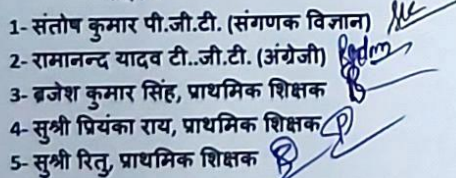 1- संतोष कुमार पी.जी.टी. (संगणक विज्ञान)
2- रामानन्द यादव टी..जी.टी. (अंग्रेजी)
3- ब्रजेश कुमार सिंह, प्राथमिक शिक्षक
4- सुश्री प्रियंका राय, प्राथमिक शिक्षक
5- सुश्री रितु, प्राथमिक शिक्षक